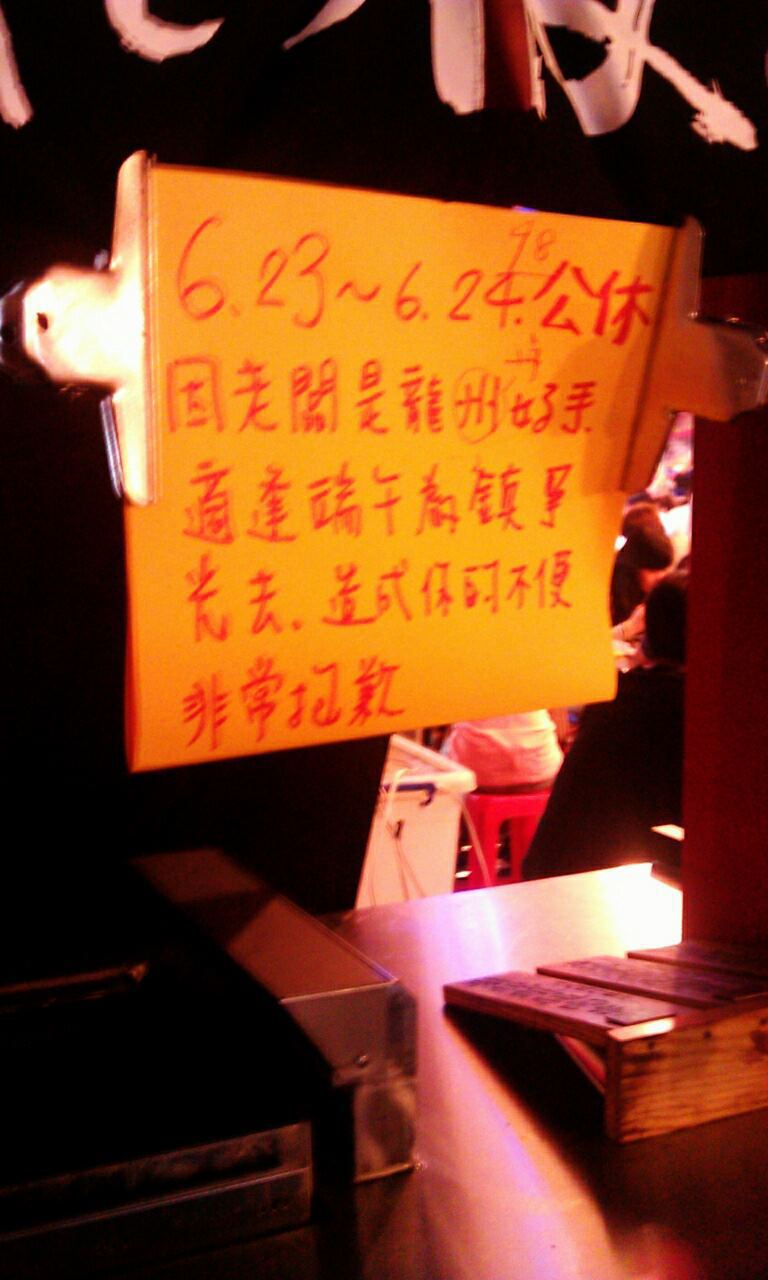 6.23~6.24.公休
因老闆是龍舟好手
適逢端午為鎮爭
光去.造成你的不便
非常抱歉